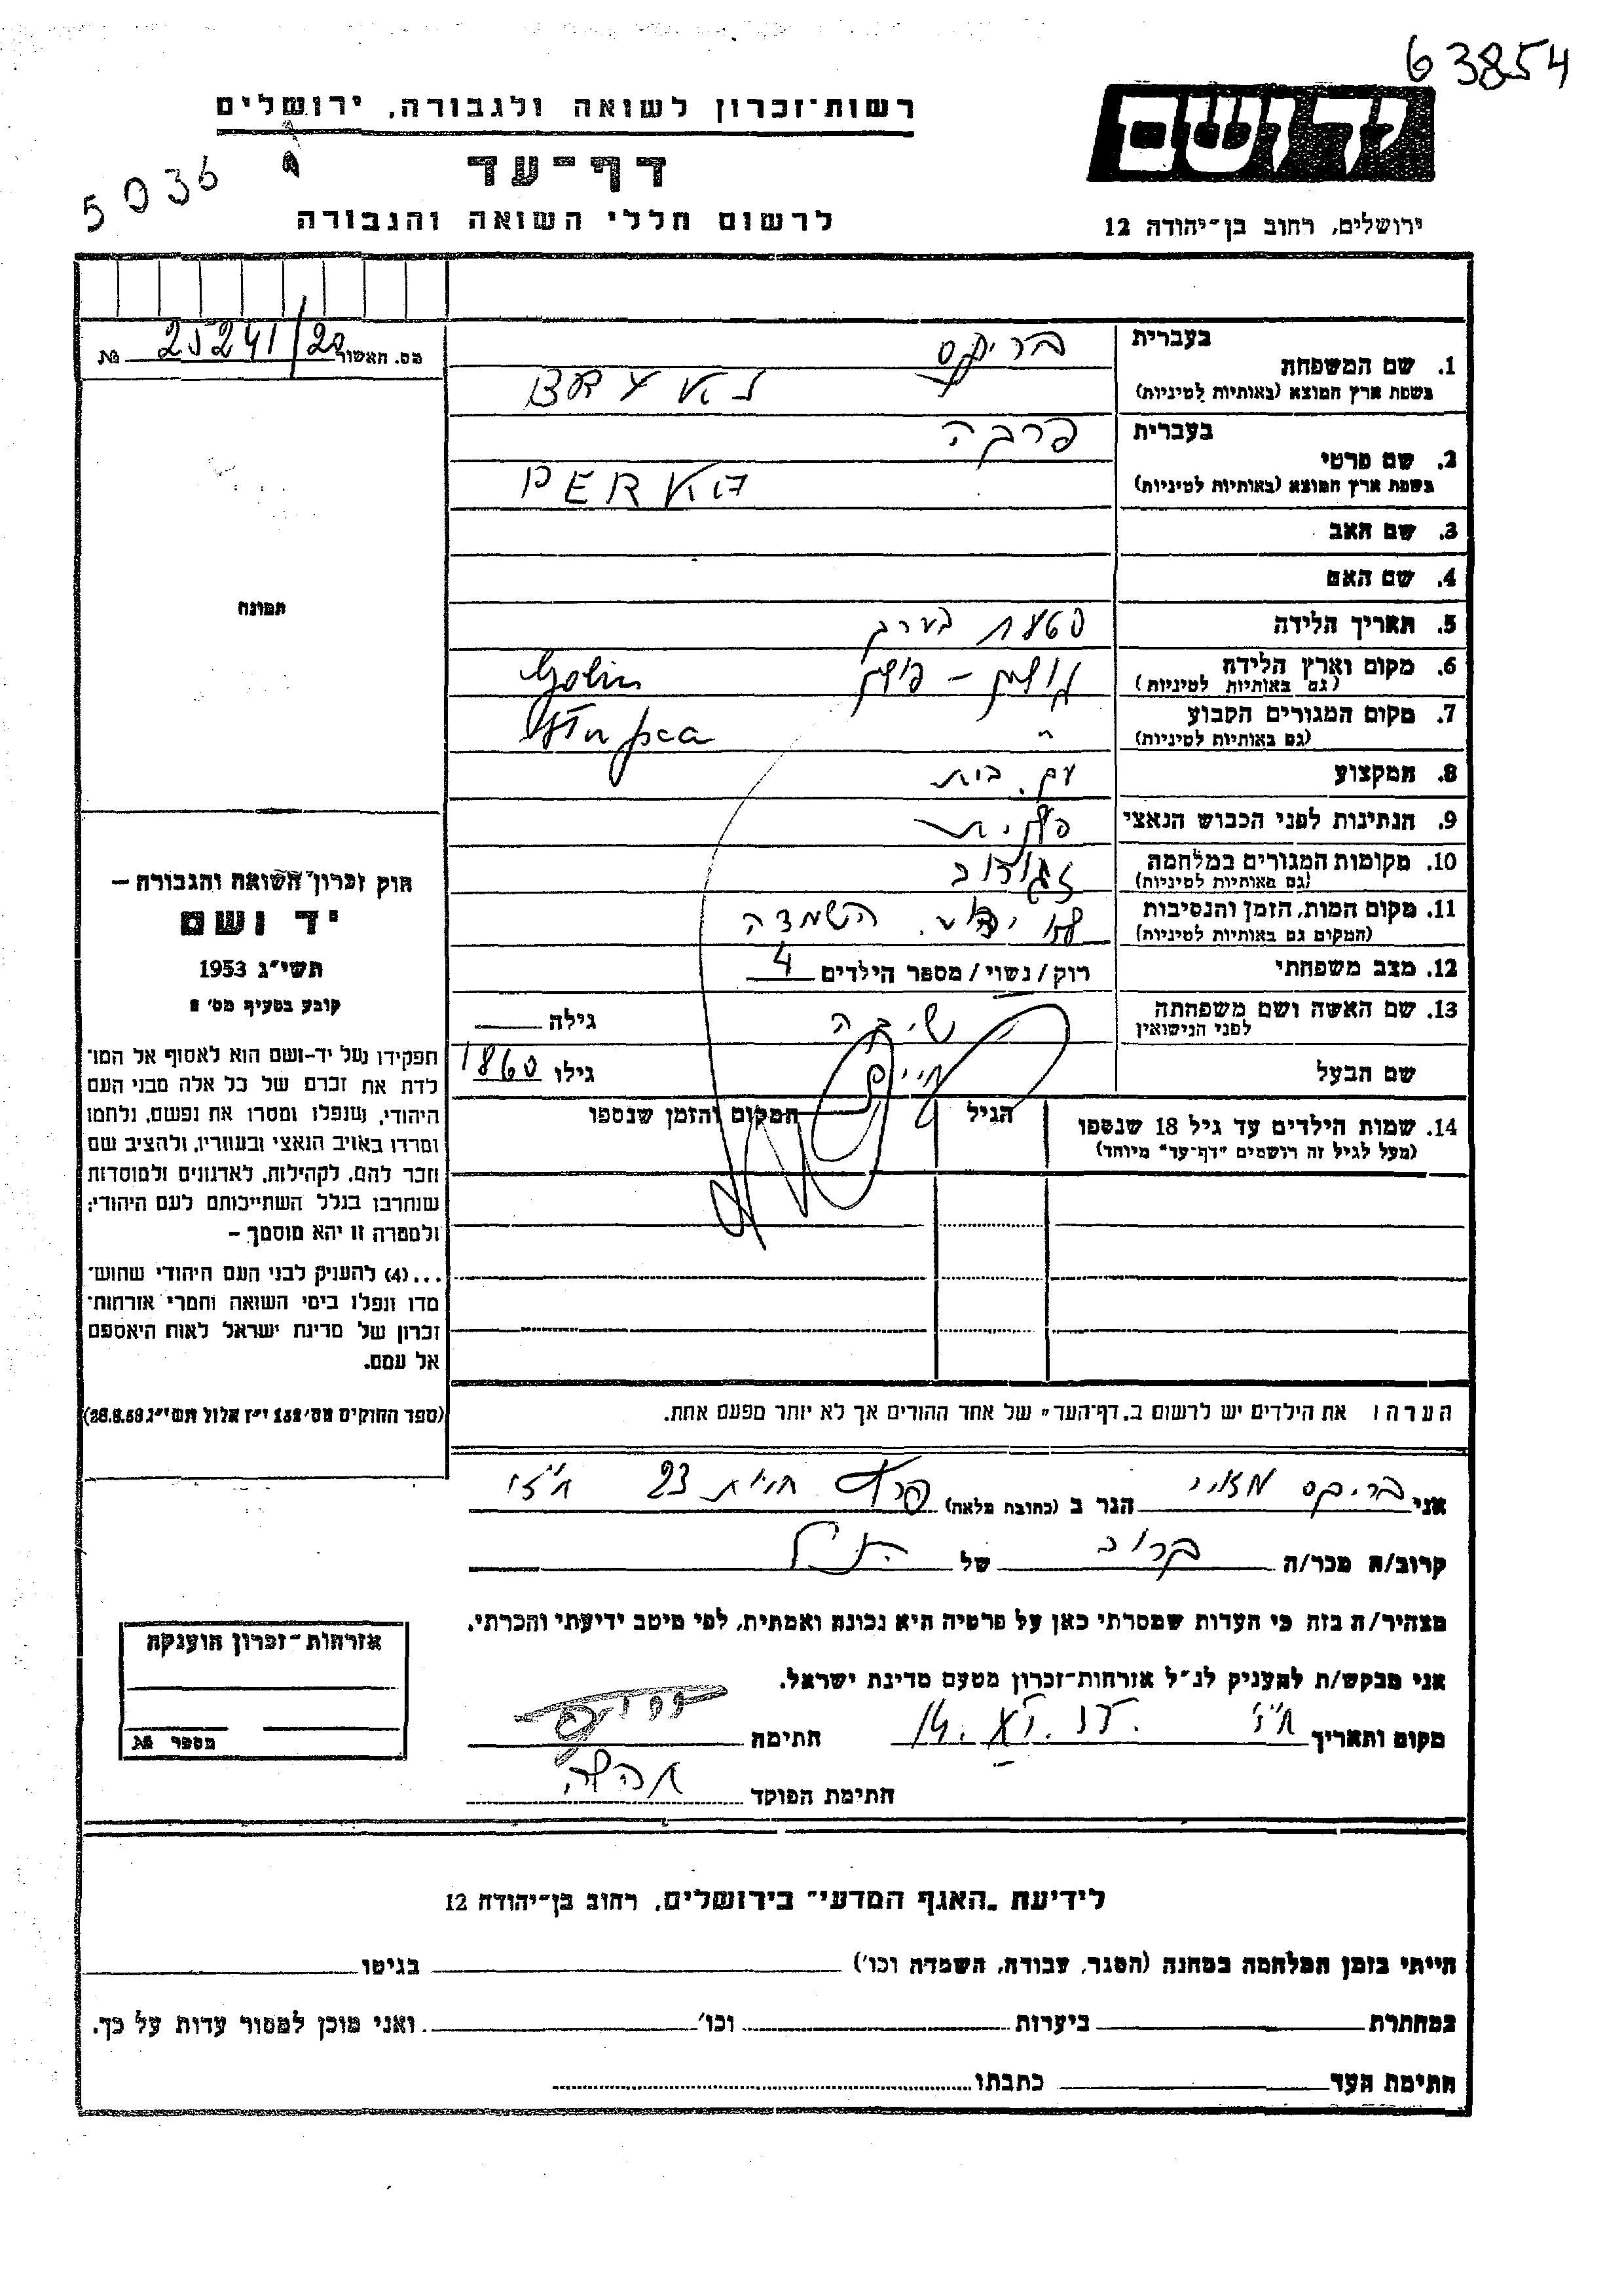 63854
רשות־זכרון לשואה ולגבורה, ירושלים
יד ושם
דף־עד
5036
לרשום חללי השואה והגבורה
ירושלים, רחוב בן־יהודה 12
מס. האשור 25241/20 №
בעברית בריקס
1. שם המשפחה
בשפת ארץ המוצא (באותיות לטיניות)
בעברית פרבה
2. שם פרטי
בשפת ארץ המוצא (באותיות לטיניות) PERKA
3. שם האב
4. שם האם
תמונה
5. תאריך הלידה 1860 בערך
6. מקום וארץ הלידה
(גם באותיות לטיניות)
7. מקום המגורים הקבוע "
(גם באותיות לטיניות)
8. המקצוע עק. בית
9. הנתינות לפני הכבוש הנאצי
10. מקומות המגורים במלחמה
(גם באותיות לטיניות)
11. מקום המות, הזמן והנסיבות לא ידוע. השמדה
(המקום גם באותיות לטיניות)
12. מצב משפחתי רוק/נשוי/מספר הילדים 4
13. שם האשה ושם משפחתה גילה
לפני הנישואין
שם הבעל חיים גילו 1860
14. שמות הילדים עד גיל 18 שנספו הגיל המקום והזמן שנספו
(מעל לגיל זה רושמים "דף־עד" מיוחד)
חוק זכרון השואה והגבורה –
יד ושם
תשי"ג 1953
קובע בסעיף מס' 2
תפקידו של יד-ושם הוא לאסוף אל המו־
לדת את זכרם של כל אלה מבני העם
היהודי, שנפלו ומסרו את נפשם, נלחמו
ומרדו באויב הנאצי ובעוזריו, ולהציב שם
וזכר להם, לקהילות, לארגונים ולמוסדות
שנחרבו בגלל השתייכותם לעם היהודי;
ולמטרה זו יהא מוסמך –
...(4) להעניק לבני העם היהודי שהוש־
מדו ונפלו בימי השואה והמרי אזרחות־
זכרון של מדינת ישראל לאות היאספם
אל עמם.
(ספר החוקים מס' 132 י"ז אלול תשי"ג 28.8.53)
הערה: את הילדים יש לרשום ב„דף־העד" של אחד ההורים אך לא יותר מפעם אחת.
אני בריקס הגר ב (כתובת מלאה) 23
קרוב/ה מכר/ה קרוב של
מצהיר/ה בזה כי העדות שמסרתי כאן על פרטיה היא נכונה ואמתית, לפי מיטב ידיעתי והכרתי.
אני מבקש/ת להעניק לנ"ל אזרחות־זכרון מטעם מדינת ישראל.
אזרחות־זכרון הוענקה
מספר №
מקום ותאריך חתימה
חתימת הפוקד
לידיעת „האגף המדעי" בירושלים, רחוב בן־יהודה 12
הייתי בזמן המלחמה במחנה (הסגר, עבודה, השמדה וכו') בגיטו
במחתרת ביערות וכו' ואני מוכן למסור עדות על כך.
חתימת העד כתבתו